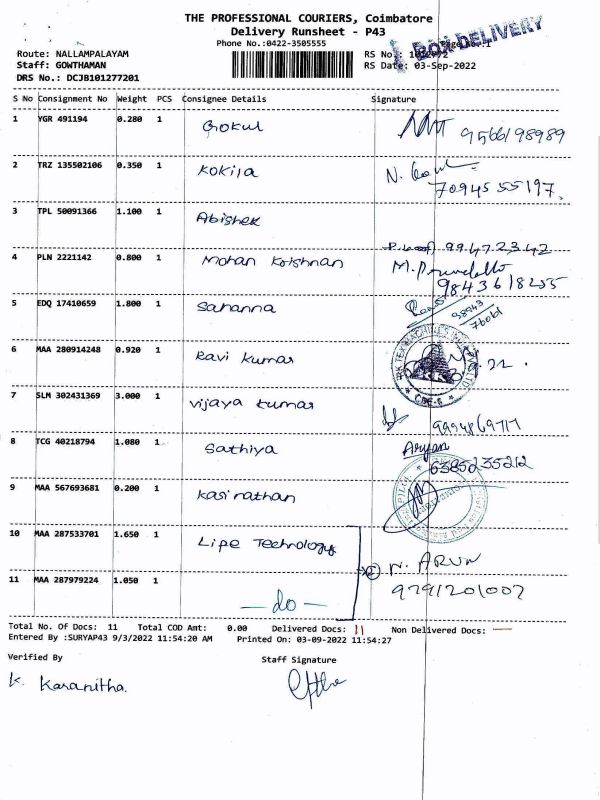 THE PROFESSIONAL COURIERS, Coimbatore
Delivery Runsheet - P43
Phone No.:0422-3505555
BOX DELIVERY
Route: NALLAMPALAYAM
Staff: GOWTHAMAN
DRS No.: DCJB101277201
RS No.:
RS Date: 03-Sep-2022
S No Consignment No Weight PCS Consignee Details Signature
1 YGR 491194 0.280 1 Gokul 9566198989
2 TRZ 135502106 0.350 1 Kokila N. 7094555197.
3 TPL 50091366 1.100 1 Abishek 99472342
4 PLN 2221142 0.800 1 Mohan Krishnan M. 9843618255
5 EDQ 17410659 1.800 1 Sahanna 98943 76061
6 MAA 280914248 0.920 1 Ravi Kumar
CBE-6
7 SLM 302431369 3.000 1 Vijaya Kumar
8 TCG 40218794 1.080 1 Sathiya Aryan 6385235212
9 MAA 567693681 0.200 1 Kasinathan
10 MAA 287533701 1.650 1 Life Technology 2 N. ARUN
11 MAA 287979224 1.050 1 — do — 9791201007
Total No. Of Docs: 11 Total COD Amt: 0.00 Delivered Docs: 11 Non Delivered Docs: —
Entered By :SURYAP43 9/3/2022 11:54:20 AM Printed On: 03-09-2022 11:54:27
Verified By Staff Signature
K. Karanitha.